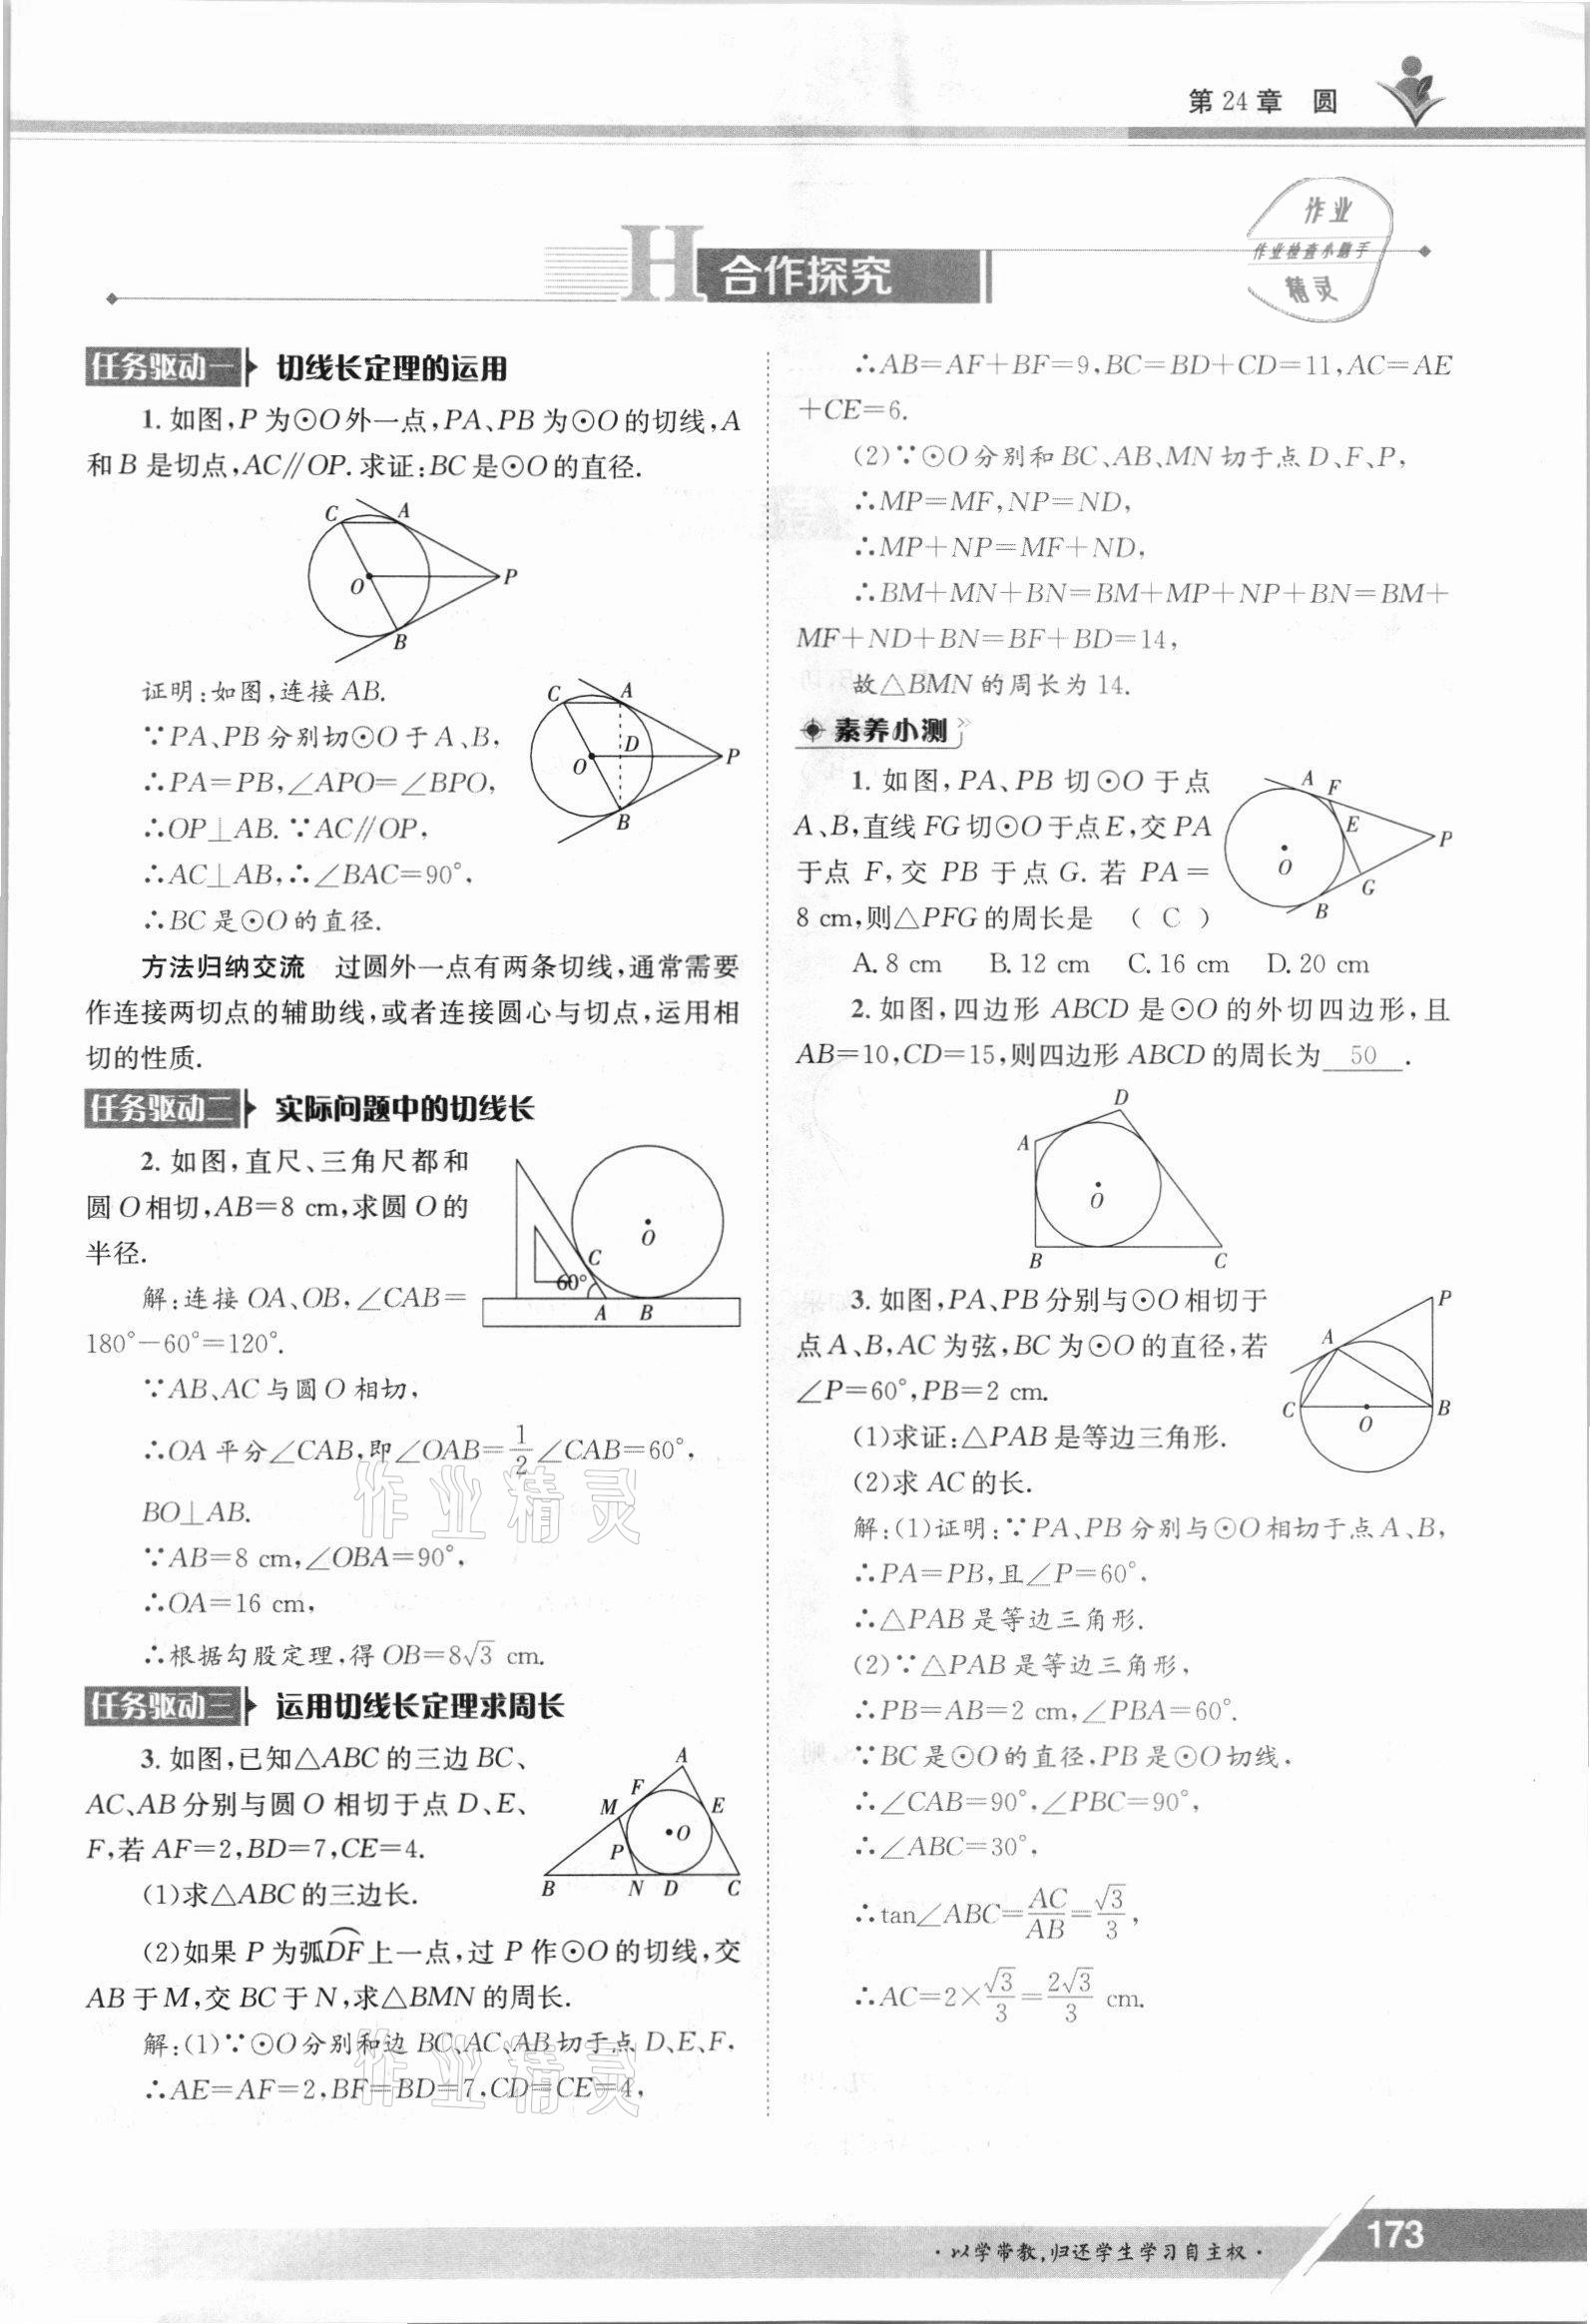 第 24 章　圆
作业
作业检查小助手
精灵
H 合作探究
任务驱动一　切线长定理的运用
1. 如图,P 为⊙O外一点,PA、PB 为⊙O的切线,A
和B 是切点,AC∥OP. 求证:BC是⊙O的直径.
C A
O P
B
证明:如图,连接 AB.
∵PA、PB分别切⊙O于A、B,
∴PA=PB,∠APO=∠BPO,
∴OP⊥AB. ∵AC∥OP,
∴AC⊥AB,∴∠BAC=90°,
∴BC是⊙O的直径.
C A
D
O P
B
方法归纳交流　过圆外一点有两条切线,通常需要
作连接两切点的辅助线,或者连接圆心与切点,运用相
切的性质.
任务驱动二　实际问题中的切线长
2. 如图,直尺、三角尺都和
圆O相切,AB=8 cm,求圆O的
半径.
O
C
60°
A B
解:连接OA、OB,∠CAB=
180°-60°=120°.
∵AB、AC与圆O相切,
∴OA平分∠CAB,即∠OAB=1/2∠CAB=60°,
BO⊥AB.
∵AB=8 cm,∠OBA=90°,
∴OA=16 cm,
∴根据勾股定理,得OB=8√3 cm.
任务驱动三　运用切线长定理求周长
3. 如图,已知△ABC的三边BC、
AC、AB分别与圆O相切于点D、E、
F,若AF=2,BD=7,CE=4.
A
F
M E
O
P
B N D C
(1)求△ABC的三边长.
(2)如果 P 为弧DF⌒上一点,过 P 作⊙O的切线,交
AB于M,交BC于N,求△BMN的周长.
解:(1)∵⊙O分别和边BC、AC、AB切于点D、E、F,
∴AE=AF=2,BF=BD=7,CD=CE=4,
∴AB=AF+BF=9,BC=BD+CD=11,AC=AE
+CE=6.
(2)∵⊙O分别和BC、AB、MN切于点D、F、P,
∴MP=MF,NP=ND,
∴MP+NP=MF+ND,
∴BM+MN+BN=BM+MP+NP+BN=BM+
MF+ND+BN=BF+BD=14,
故△BMN的周长为14.
素养小测
1. 如图,PA、PB 切⊙O 于点
A、B,直线FG切⊙O于点E,交PA
于点 F,交 PB 于点 G. 若 PA=
8 cm,则△PFG的周长是　( C )
A F
E
P
O
G
B
A. 8 cm　B. 12 cm　C. 16 cm　D. 20 cm
2. 如图,四边形 ABCD 是⊙O 的外切四边形,且
AB=10,CD=15,则四边形ABCD的周长为 50 .
D
A
O
B C
3. 如图,PA、PB分别与⊙O相切于
点A、B,AC为弦,BC为⊙O的直径,若
∠P=60°,PB=2 cm.
P
A
C O B
(1)求证:△PAB是等边三角形.
(2)求 AC的长.
解:(1)证明:∵PA、PB分别与⊙O相切于点A、B,
∴PA=PB,且∠P=60°,
∴△PAB是等边三角形.
(2)∵△PAB是等边三角形,
∴PB=AB=2 cm,∠PBA=60°.
∵BC是⊙O的直径,PB是⊙O切线,
∴∠CAB=90°,∠PBC=90°,
∴∠ABC=30°,
∴tan∠ABC=AC/AB=√3/3,
∴AC=2×√3/3=2√3/3 cm.
作业精灵
作业精灵
·以学带教,归还学生学习自主权·
173